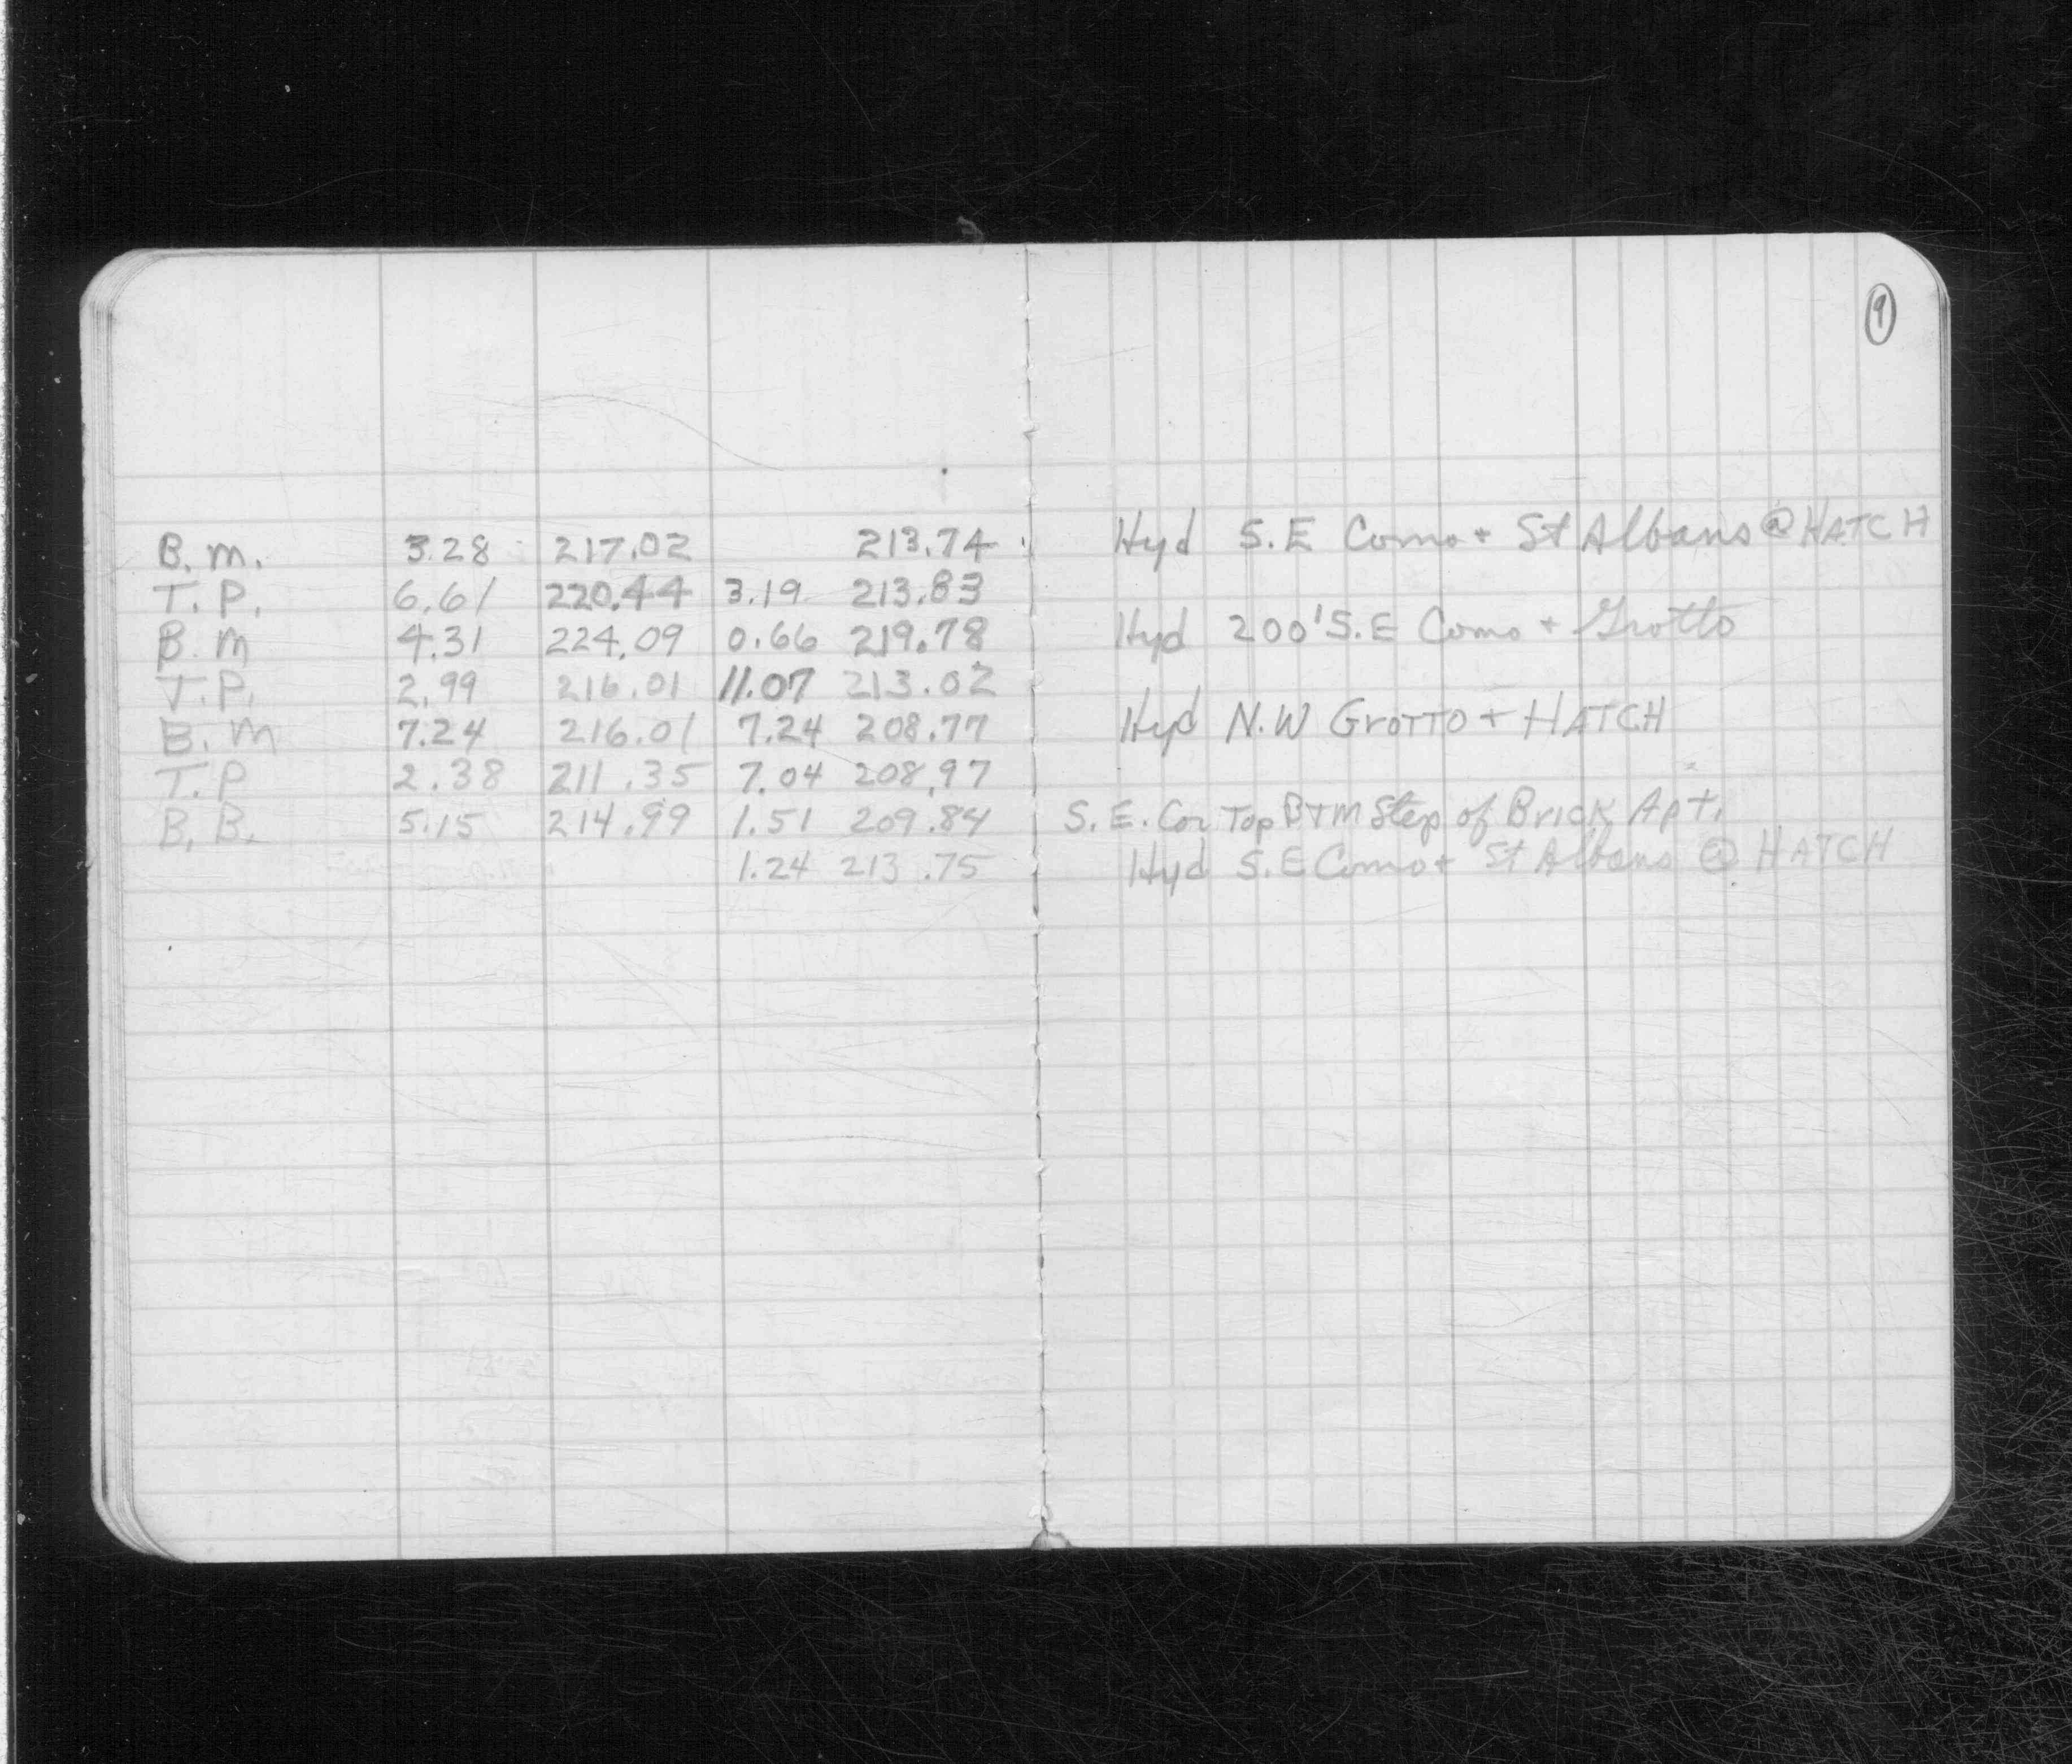 9
B.M. 3.28 217.02 213.74 Hyd S.E Como + St Albans @ HATCH
T.P. 6.61 220.44 3.19 213.83
B.M 4.31 224.09 0.66 219.78 Hyd 200' S.E Como + Grotto
T.P. 2.99 216.01 11.07 213.02
B.M 7.24 216.01 7.24 208.77 Hyd N.W GROTTO + HATCH
T.P 2.38 211.35 7.04 208.97
B.B. 5.15 214.99 1.51 209.84 S.E. Cor Top BTM Step of Brick Apt.
1.24 213.75 Hyd S.E Como + St Albans @ HATCH